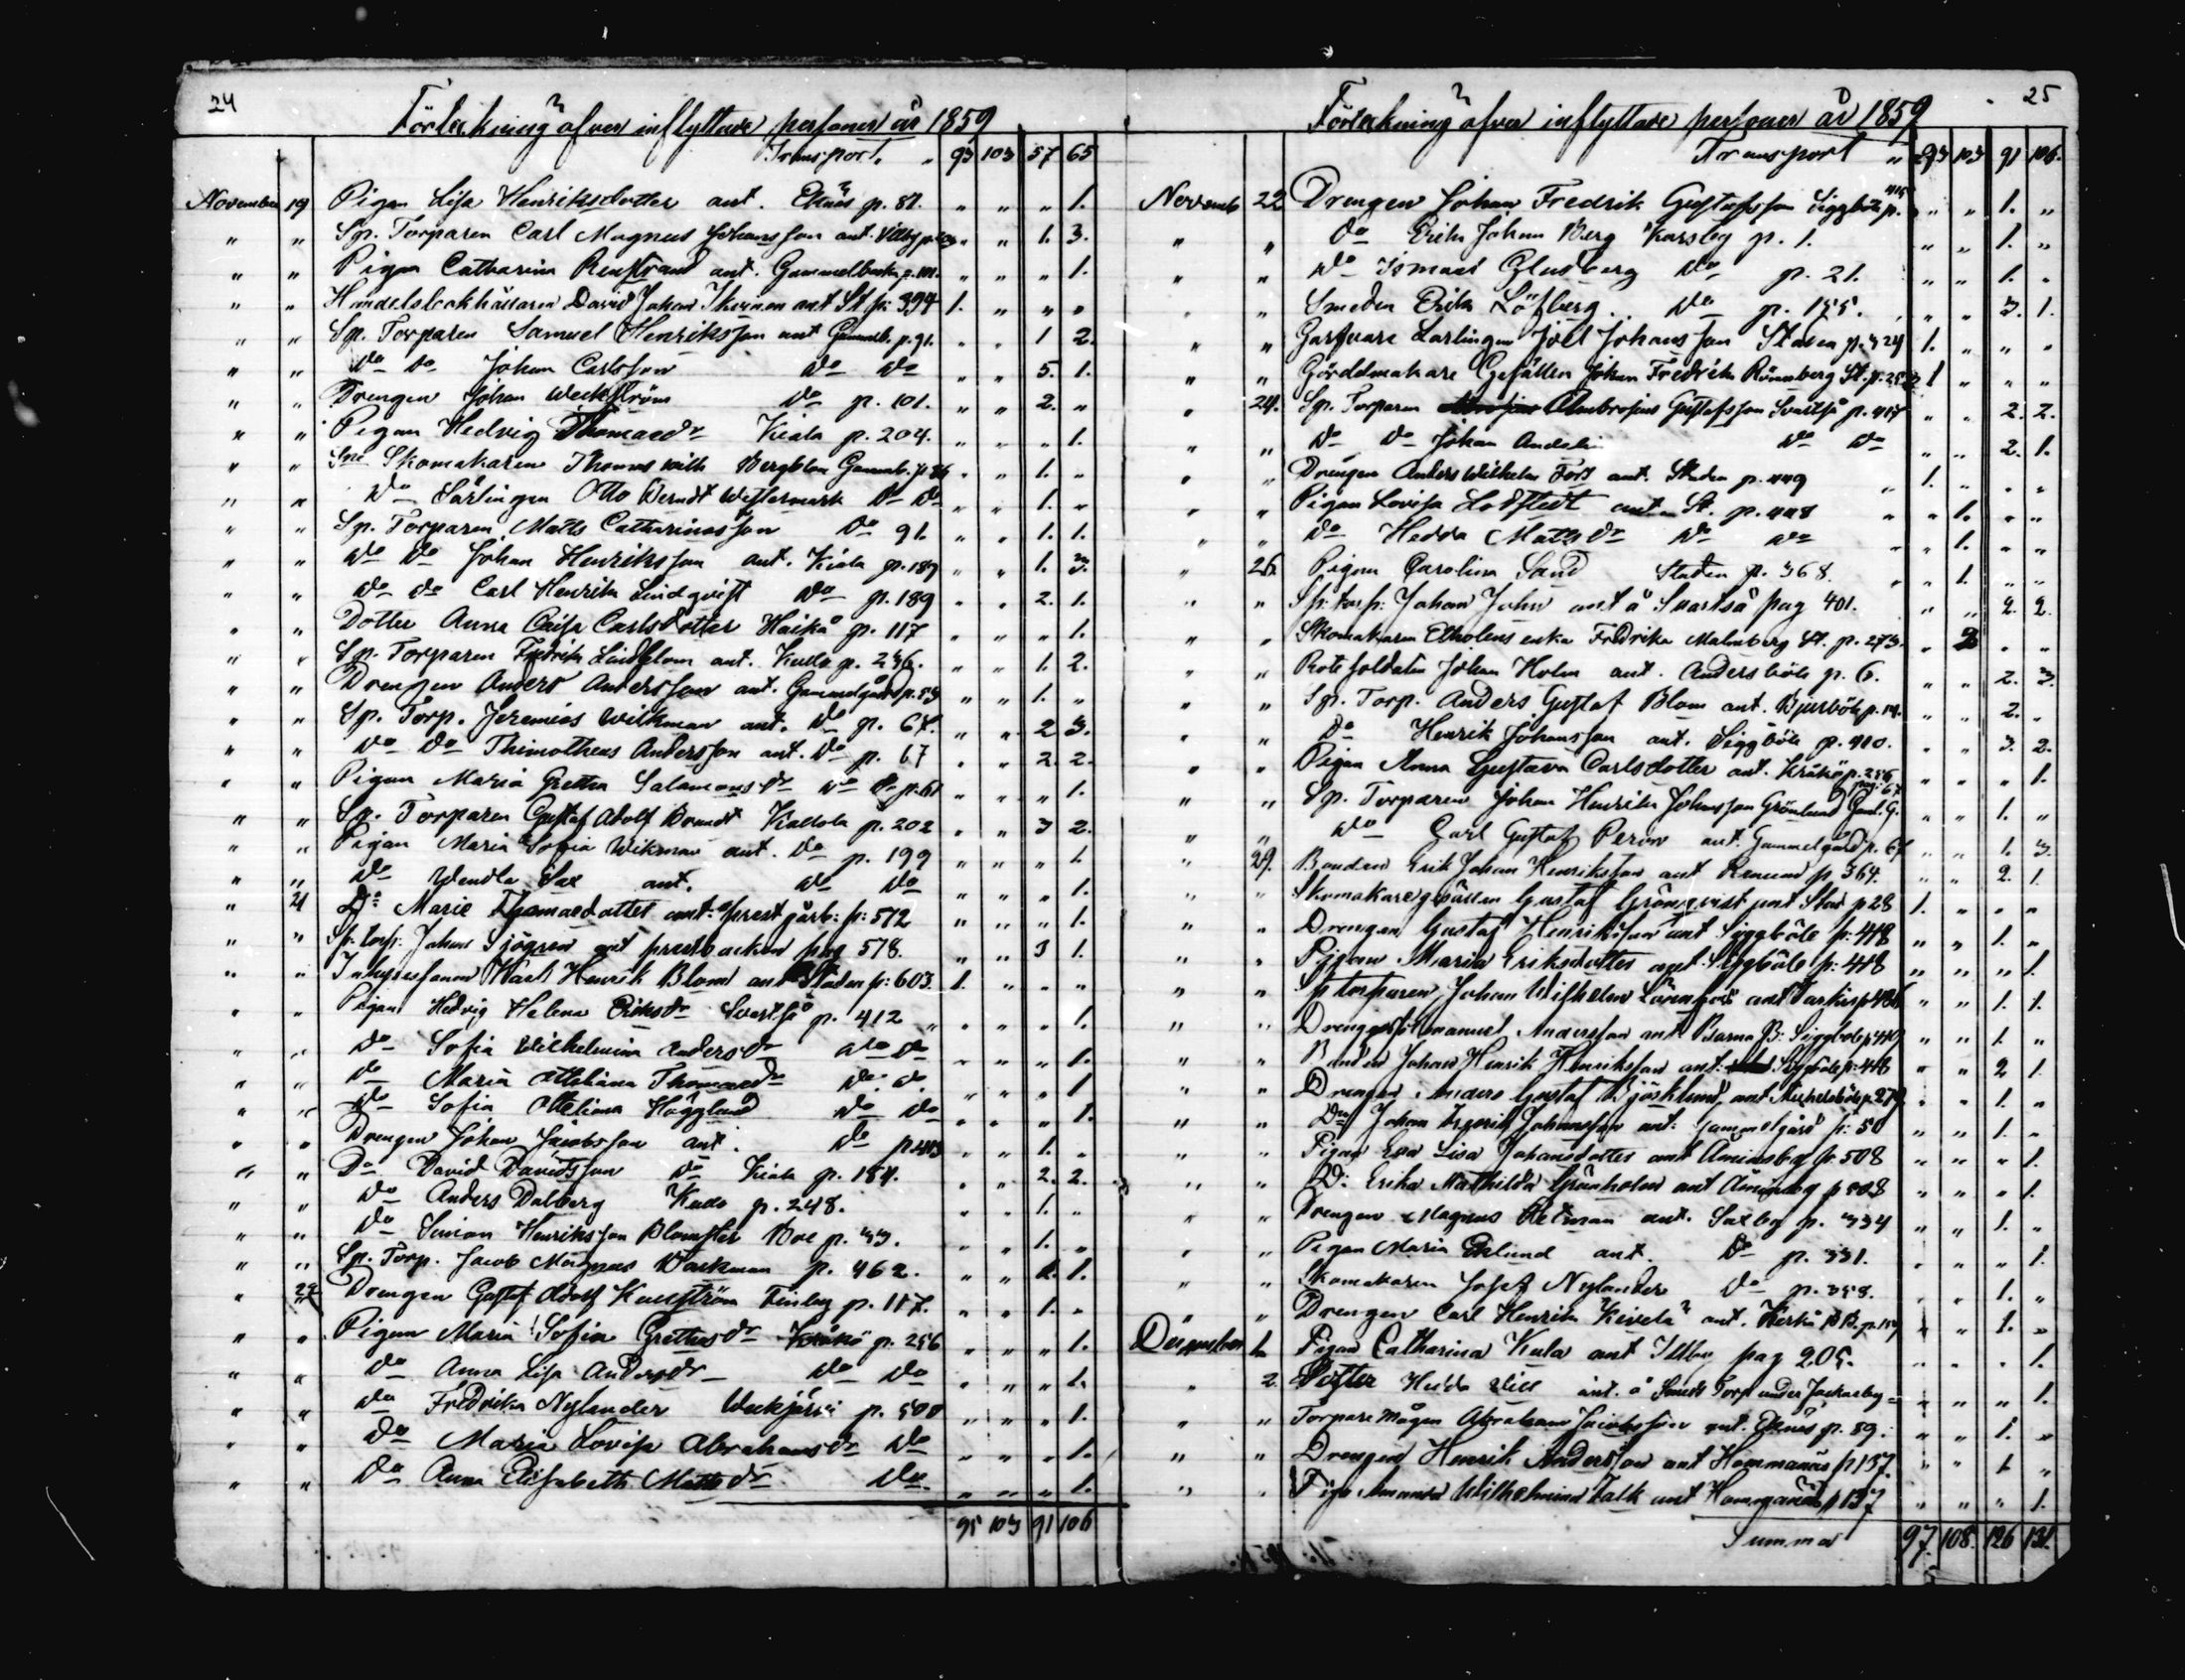 24
Förteckning öfver inflyttade personer år 1859
Transport. " 93 103 57 65
November 19 Pigan Lisa Henriksdotter ant. Eknäs p. 87. " " " 1.
" " Sp. Torparen Carl Magnus Johansson ant. Illby p. " " 1. 3.
" " Pigan Catharina Renstrand ant. Gammelbacka p. 101. " " " 1.
" " Handelsbokhållaren David Johan Ikoinen ant St. p. 394 1. " " "
" " Sp. Torparen Samuel Henriksson ant Gammelb. p. 91. " " 1 2.
" " Do Do Johan Carlsson Do Do " " 5. 1.
" " Drengen Johan Weckström Do p. 101. " " 2. "
" " Pigan Hedvig Thomasdr Kiala p. 204. " " " 1.
" " Skomakaren Thomas Wilh Bergblom Gammb. p. 86 " " 1. "
" " Do Lärlingen Otto Berndt Westermark Do Do " " 1. "
" " Sp. Torparen Matts Catharinasson Do 91. " " 1. 1.
" " Do Do Johan Henriksson ant. Kiala p. 189 " " 1. 3.
" " Do Do Carl Henrik Lindqvist Do p. 189 " " 2. 1.
" " Dotter Anna Caisa Carlsdotter Haikå p. 117 " " " 1.
" " Sp. Torparen Fredrik Lindblom ant. Kullo p. 236. " " 1. 2.
" " Drengen Anders Andersson ant. Gammelgård p. 54 " " 1. "
" " Sp. Torp. Jeremias Wikman ant. Do p. 67. " " 2 3.
" " Do Do Thimotheus Andersson ant. Do p. 67 " " 2. 2.
" " Pigan Maria Gretha Salamonsdr Do Do p. 61 " " " 1.
" " Sp. Torparen Gustaf Adolf Brandt Kallola p. 202 " " 3 2.
" " Pigan Maria Sofia Wikman ant. Do p. 199 " " " 1.
" " Do Wendla Sax ant. Do Do " " " 1.
" 21 Do Maria Thomasdotter ant: prestgårb: p: 572 " " " 1.
" " Sp: torp: Johan Sjögren ant prestbacken pag 578. " " 3 1.
" " Karl Henrik Blom ant Staden p: 603. 1. " " "
" " Pigan Hedvig Helena Eriksdr Svartså p. 412 " " " 1.
" " Do Sofia Wilhelmina Andersdr Do Do " " " 1.
" " Do Maria Ottiliana Thomasdr Do Do. " " " 1
" " Do Sofia Otteliana Hägglund Do Do " " " 1.
" " Drengen Johan Jacobsson ant. Do p. 413 " " 1. "
" " Do David Davidsson Do Kiala p. 184. " " 2. 2.
" " Do Anders Dalberg Kullo p. 248. " " 1. "
" " Do Simon Henriksson Blomster Boe p. 33. " " 1. "
" " Sp. Torp. Jacob Magnus Backman p. 462. " " 2. 1.
" 22 Drengen Gustaf Adolf Kullström Finby p. 117. " " 1. "
" " Pigan Maria Sofia Grethasdr Kråkö p. 256 " " " 1.
" " Do Anna Lisa Andersdr Do Do " " " 1.
" " Do Fredrika Nylander Weckjärvi p. 500 " " " 1.
" " Do Maria Lovisa Abrahamsdr Do " " " 1.
" " Do Anna Elisabeth Mattsdr Do " " " 1.
95 103 91 106
25
Förteckning öfver inflyttade personer år 1859
Transport " 93 103 91 106.
Novemb 22 Drengen Johan Fredrik Gustafsson Siggböle p. 415 " " 1. "
" " Do Erik Johan Berg Karsby p. 1. " " 1. "
" " Do Ismael Glusberg Do p. 21. " " 1. "
" " Smeden Erik Löfberg Do p. 155. " " 3. 1.
" " Garfvare Lärlingen Joel Johansson Staden p. 324 1. " " "
" " Gördelmakare Gesällen Johan Fredrik Rönnberg St. p. 1 " " "
" 24. Sp. Torparen Ambrosius Gustafsson Svartså p. 417 " " 2. 2.
" " Do Do Johan Andelin Do Do " " 2. 1.
" " Drengen Anders Wilhelm Fors ant. Staden p. 449 1. " " "
" " Pigan Lovisa Lodstedt ant St. p. 448 " 1. " "
" " Do Hedda Mattsdr Do Do " 1. " "
" 26 Pigan Carolina Sand Staden p. 368. " 1. " "
" " Sp: torp: Johan John ant å Svartså pag 401. " " 2. 2.
" " Skomakaren Ekholms enka Fredrika Malmberg St. p. 273. " 2 " "
" " Rotesoldaten Johan Holm ant. Andersböle p. 6. " " 2. 3.
" " Sp. Torp. Anders Gustaf Blom ant. Bjurböle p. 14. " " 2. "
" " Do Henrik Johansson ant. Siggböle p. 410. " " 3. 2.
" " Pigan Anna Gustava Carlsdotter ant. Kråkö p. 256 " " " 1.
" " Sp. Torparen Johan Henrik Johansson Grönlund Gaml. G. pag: 67 " " 1. "
" " Do Carl Gustaf Peron ant. Gammelgård p. 67 " " 1. 3.
" 29. Bonden Erik Johan Henriksson ant Renum p 364. " " 2. 1.
" " Skomakaregesällen Gustaf Grönqvist ant Stad p 28 1. " " "
" " Drengen Gustaf Henriksson ant Siggböle p: 418 " " 1. "
" " Pigan Maria Eriksdotter ant Siggböle p: 418 " " " 1.
" " Sp torparen Johan Wilhelm Lönnfors ant Tarkis p 486 " " 1. 1.
" " Drengen Emanuel Andersson ant Siggböle p 410 " " 1. "
" " Bonden Johan Henrik Henriksson ant: Siggböle p: 418 " " 2 1.
" " Drengen Anders Gustaf Björklund ant Mickelsböle p. 279 " " 1. "
" " Do Johan Fredrik Johansson ant: Gammelgård p: 50 " " 1. "
" " Pigan Eva Lisa Johansdotter ant Aminsby p: 508 " " " 1.
" " Do: Erika Mathilda Grönholm ant Aminsby p 508 " " " 1.
" " Drengen Magnus Hetman ant. Saxby p. 334 " " 1. "
" " Pigan Maria Eklund ant. Do p. 331. " " " 1.
" " Skomakaren Josef Nylander Do p. 358. " " 1. "
" " Drengen Carl Henrik Kivelä ant. p. 157 " " 1. "
December 1. Pigan Catharina Kula ant Illby pag 205. " " " 1.
" 2. Dotter Hedda Lill ant. å Smeds Torp under Jackarby " " " 1.
" " Torpare mågen Abraham Jacobsson ant. Eknäs p. 89. " " 1. "
" " Drengen Henrik Andersson ant Hommanäs p 137. " " 1 "
" " Piga Amanda Wilhelmina Falk ant Hommanäs p 137 " " " 1.
Summa 97. 108. 126 131.